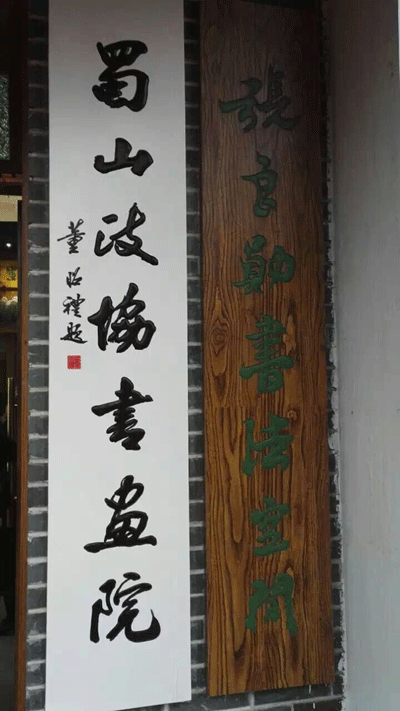 張良勛書法空間
蜀山政協書畫院
董昭禮題